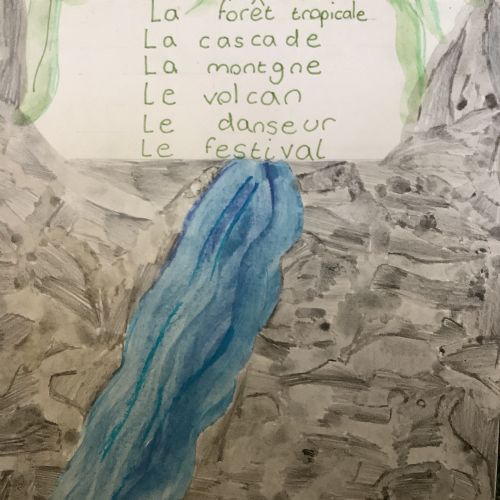 La forêt tropicale
La cascade
La montgne
Le volcan
Le danseur
Le festival